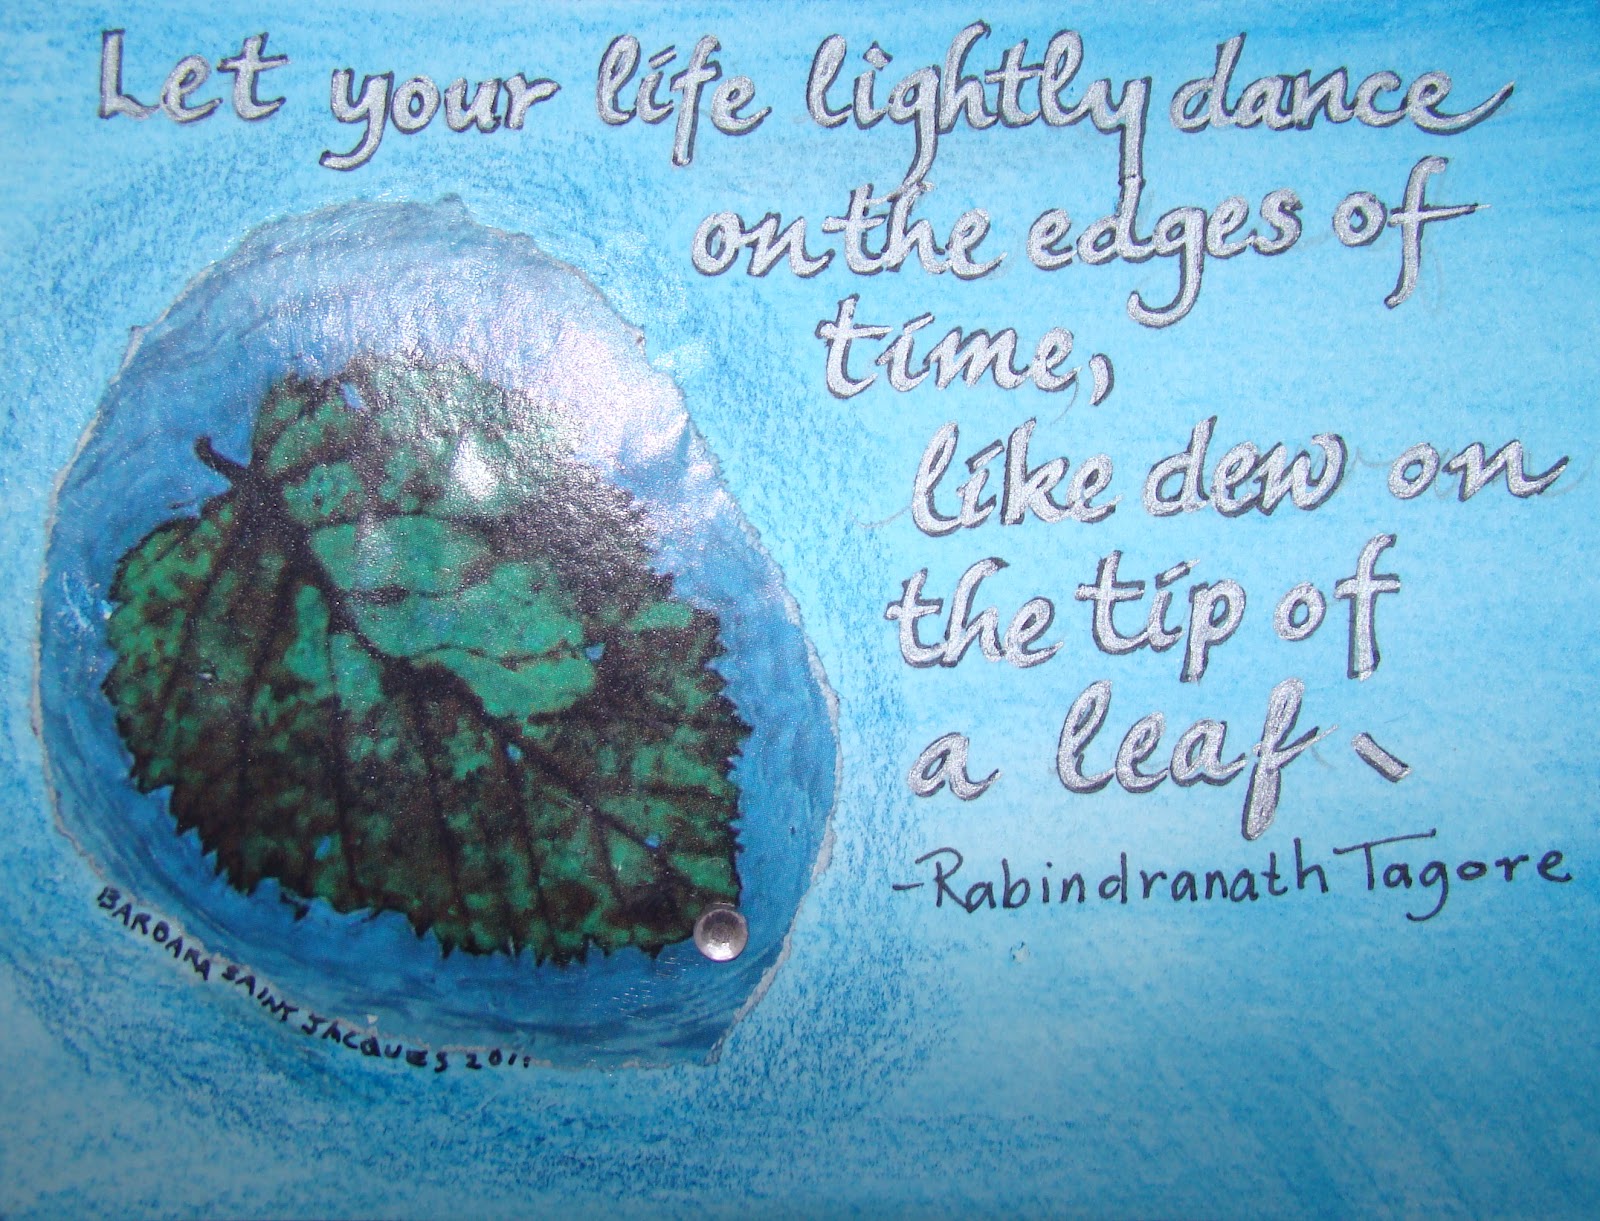 Let your life lightly dance
on the edges of
time,
like dew on
the tip of
a leaf
-Rabindranath Tagore
BARBARA SAINT JACQUES 2011